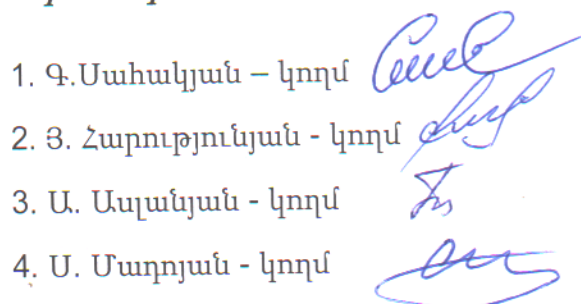 1. Գ.Սահակյան – կողմ
2. Յ. Հարությունյան - կողմ
3. Ա. Ասլանյան - կողմ
4. Ս. Մադոյան - կողմ